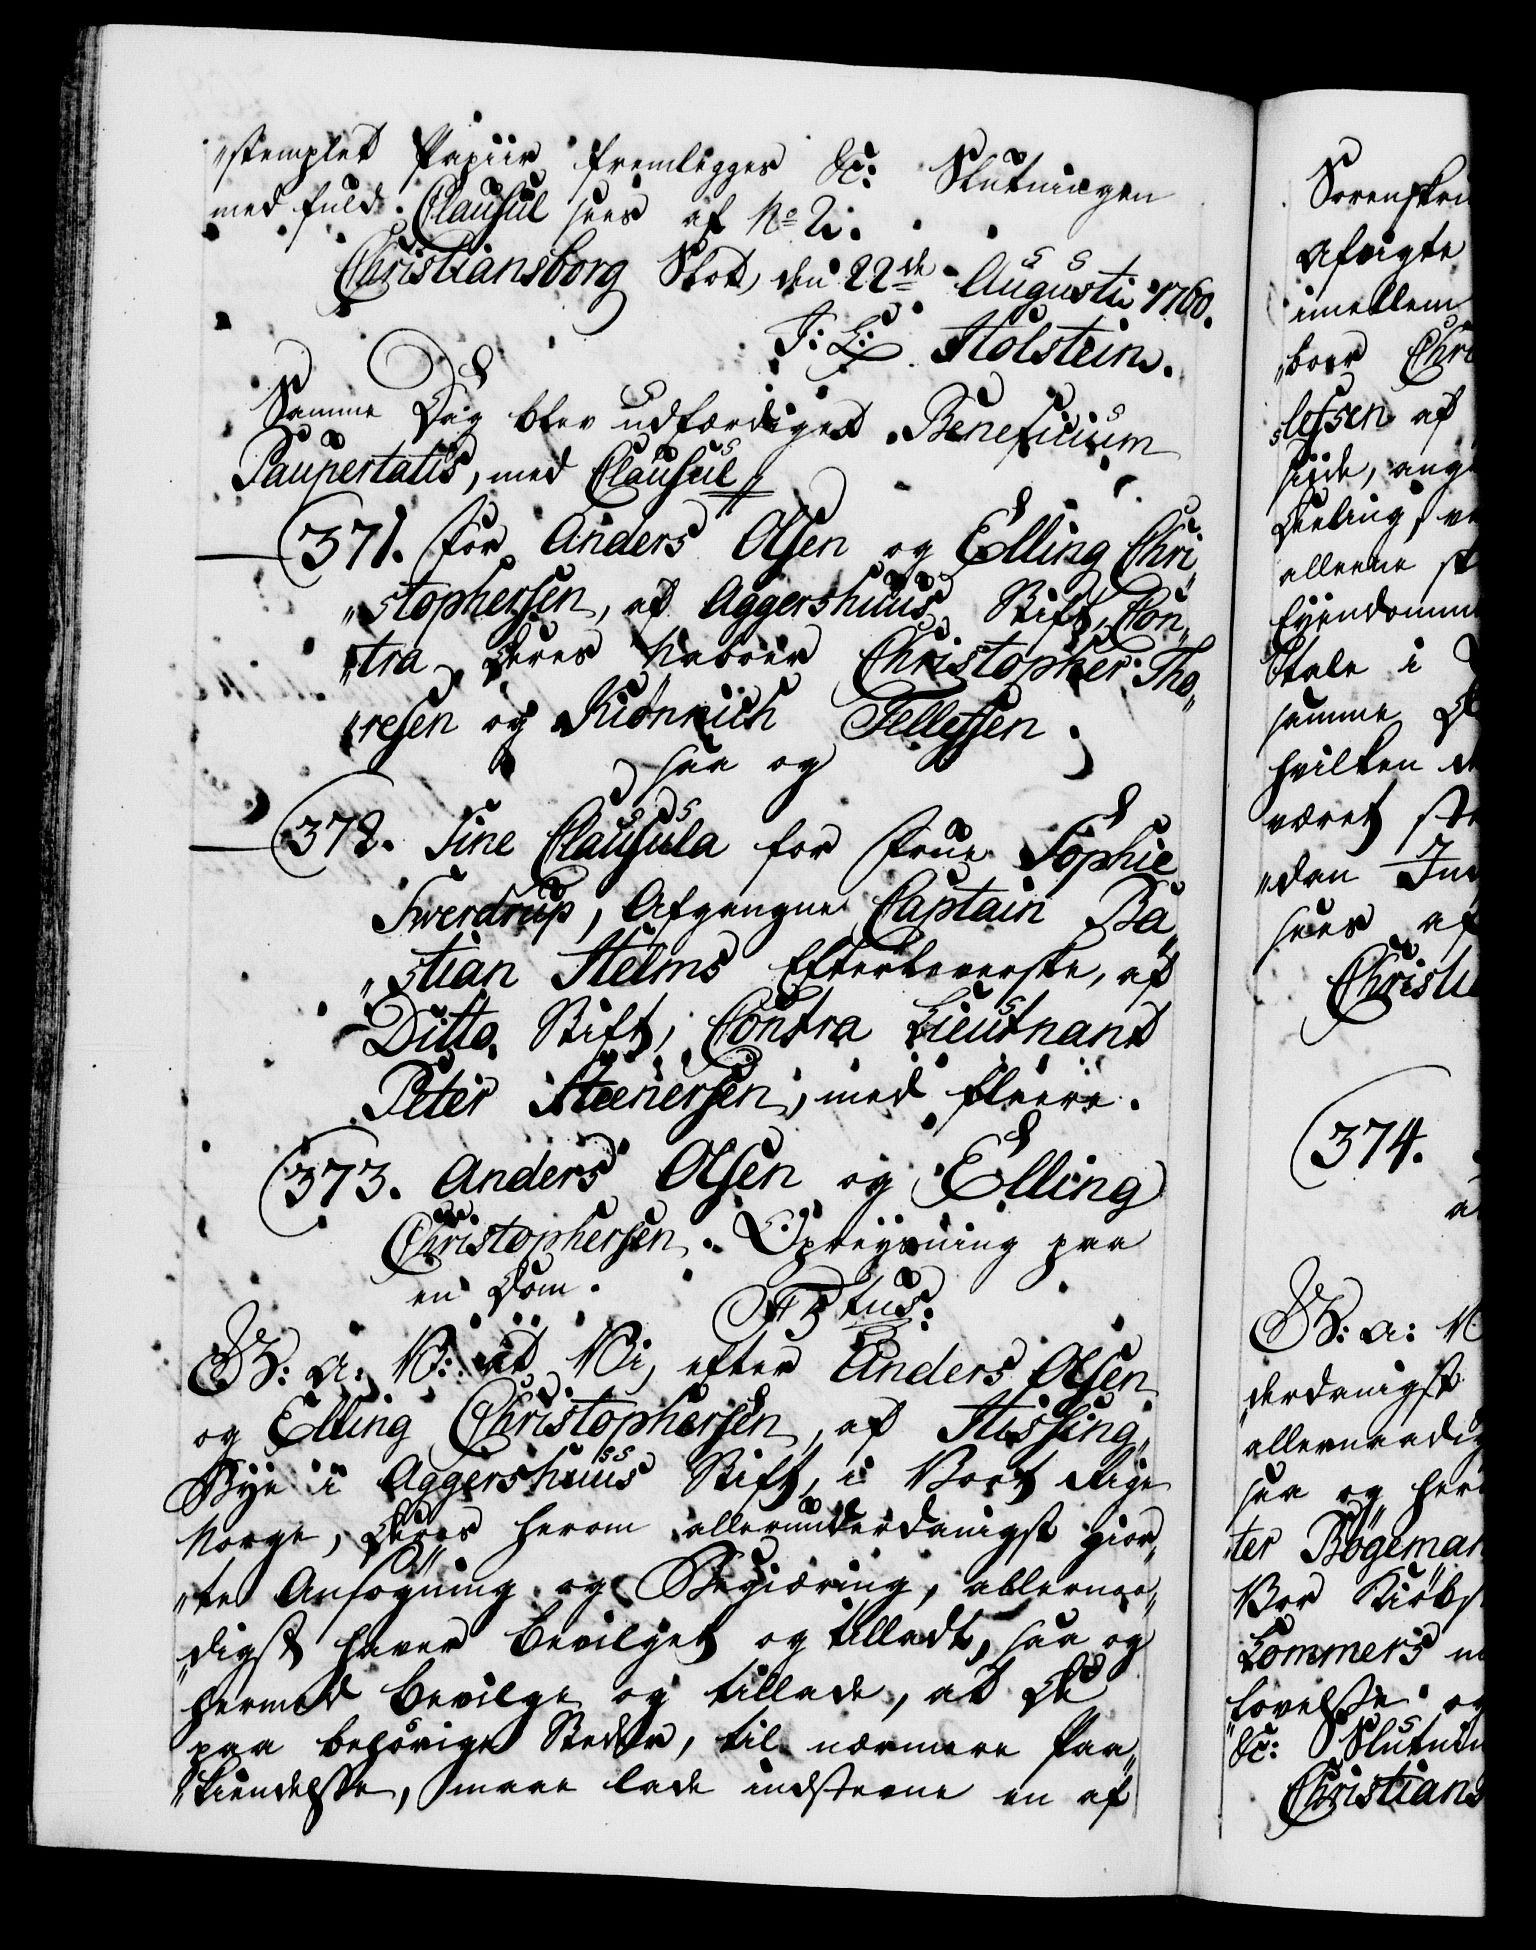 "stemplet Papiir fremlegges &c: Slutningen
med fuld Clausul sees af No 2.
Christiansborg Slot, den 22de Augusti 1760.
J: L: Holstein.
Samme Dag blev udfærdiget Beneficium
Paupertatis, med Clausul
371. For Anders Olsen og Elling Chri„
„stophersen, af Aggershuus Stift, Con„
„tra Deres Naboer Christopher Tho„
„resen og Kiønnich Tellefsen.
saa og
372. Sine Clausula for Frue Sophie
Swerdrup, Afgangne Captain Ba„
„stian Helms Efterleverske, af
Ditto Stift, Contra Lieutnant
Peter Steenersen, med fleere.
373. Anders Olsen og Elling
Christophersen. Opreysning paa
en Dom.
F5tus.
G: a: V: at Vi, efter Anders Olsen
og Elling Christophersen, af Hissing„
Bye i Aggershuus Stift, i Vort Rige
Norge, Deres herom allerunderdanigst gior„
„te Ansøgning og Begiæring, allernaa„
„digst haver bevilget og tilladt, saa og
hermed bevilge og tillade, at De
paa behørige Steder, til nærmere Paa„
„kiendelse, maae lade indstevne en af
Sorenskri
Afsigte
imellem
„boer Chri
slefsen af
siide, ang
Deeling, ve
alleene st
Eyendomm
Stole i
samme D
hvilken d
været st
„dan In
sees af
Christi
374.
G: a: V
derdanigst
allernaadig
saa og her
ter Bøgeman
Vor Kiøbs
Lommers
lovelse og
&c: Slutni
Christians